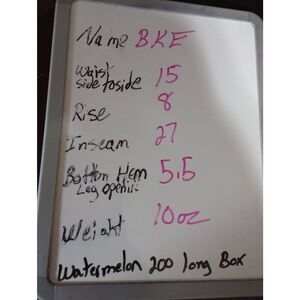 Name BKE
Waist
side to side 15
Rise 8
Inseam 27
Bottom Hem 5.5
Leg openin
Weight 10oz
Watermelon 200 long Box